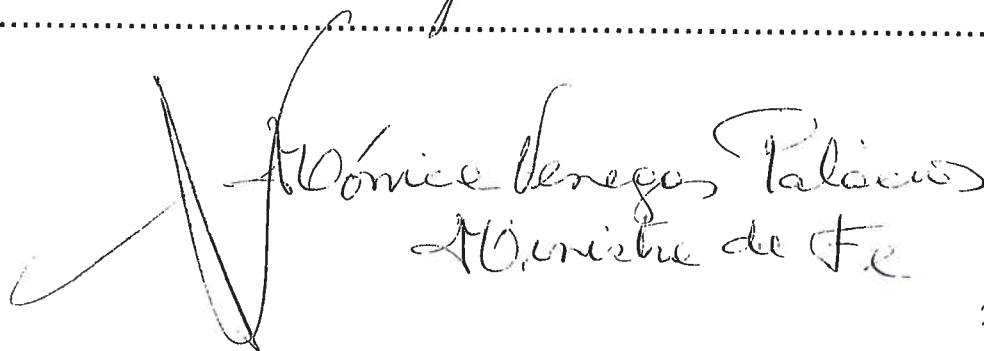 Mónica Venegas Palacios
Ministra de Fe